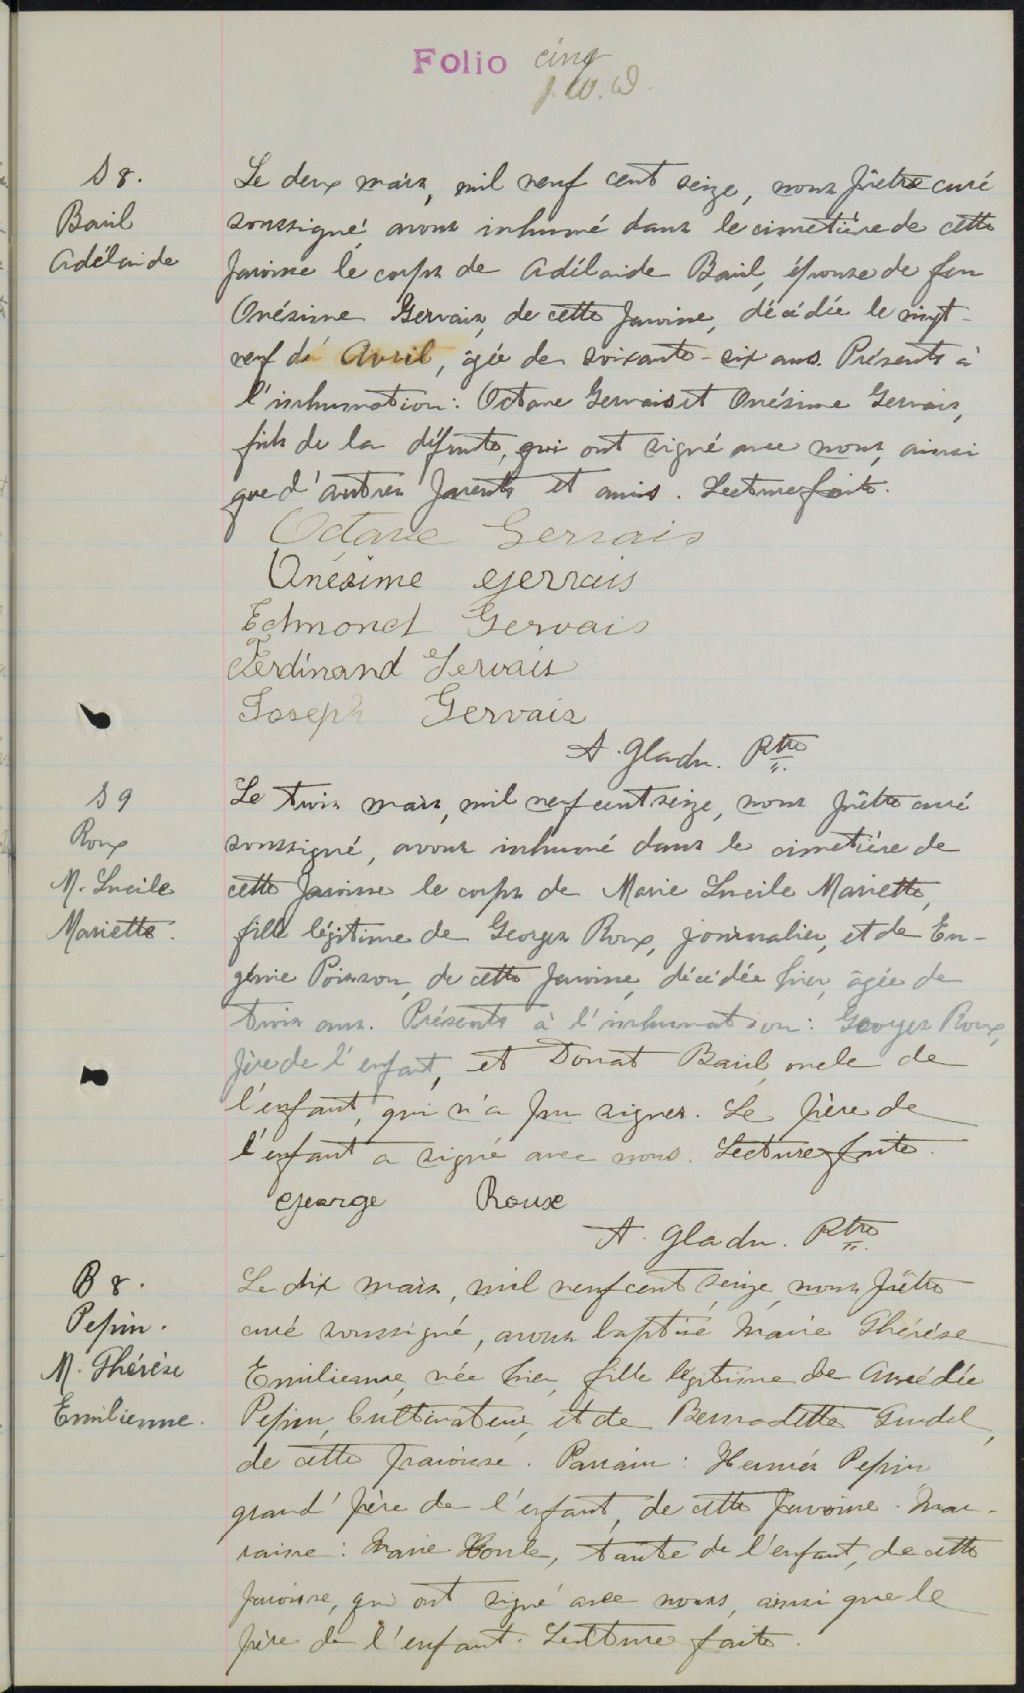 Folio cinq
J.W.D.
S 8.
Baril
Adélaide
Le deux mars, mil neuf cent seize, nous prêtre curé
soussigné avons inhumé dans le cimetière de cette
paroisse le corps de Adélaide Baril, épouse de feu
Onésime Gervais, de cette paroisse, décédée le vingt-
neuf de Avril, âgée de soixante-six ans. Présents à
l'inhumation: Octave Gervais et Onésime Gervais,
fils de la défunte, qui ont signé avec nous, ainsi
que d'autres parents et amis. Lecture faite.
Octave Gervais
Onésime Gervais
Edmond Gervais
Ferdinand Gervais
Joseph Gervais
A. Gladu. Ptre
S 9
Roux
M. Lucile
Mariette.
Le trois mars, mil neuf cent seize, nous prêtre curé
soussigné, avons inhumé dans le cimetière de
cette paroisse le corps de Marie Lucile Mariette,
fille légitime de Georges Roux, journalier, et de Eu-
génie Poisson, de cette paroisse, décédée hier, âgée de
trois ans. Présents à l'inhumation: Georges Roux,
père de l'enfant, et Donat Baril, oncle de
l'enfant, qui n'a pu signer. Le père de
l'enfant a signé avec nous. Lecture faite.
George Roux
A. Gladu. Ptre
B 8.
Pepin.
M. Thérèse
Emilienne.
Le dix mars, mil neuf cent seize, nous prêtre
curé soussigné, avons baptisé Marie Thérèse
Emilienne, née hier, fille légitime de Amédée
Pepin, Cultivateur, et de Bernadette
de cette paroisse. Parrain: Pepin
grand'père de l'enfant, de cette paroisse. Mar-
raine: Marie Houle, tante de l'enfant, de cette
paroisse, qui ont signé avec nous, ainsi que le
père de l'enfant. Lecture faite.